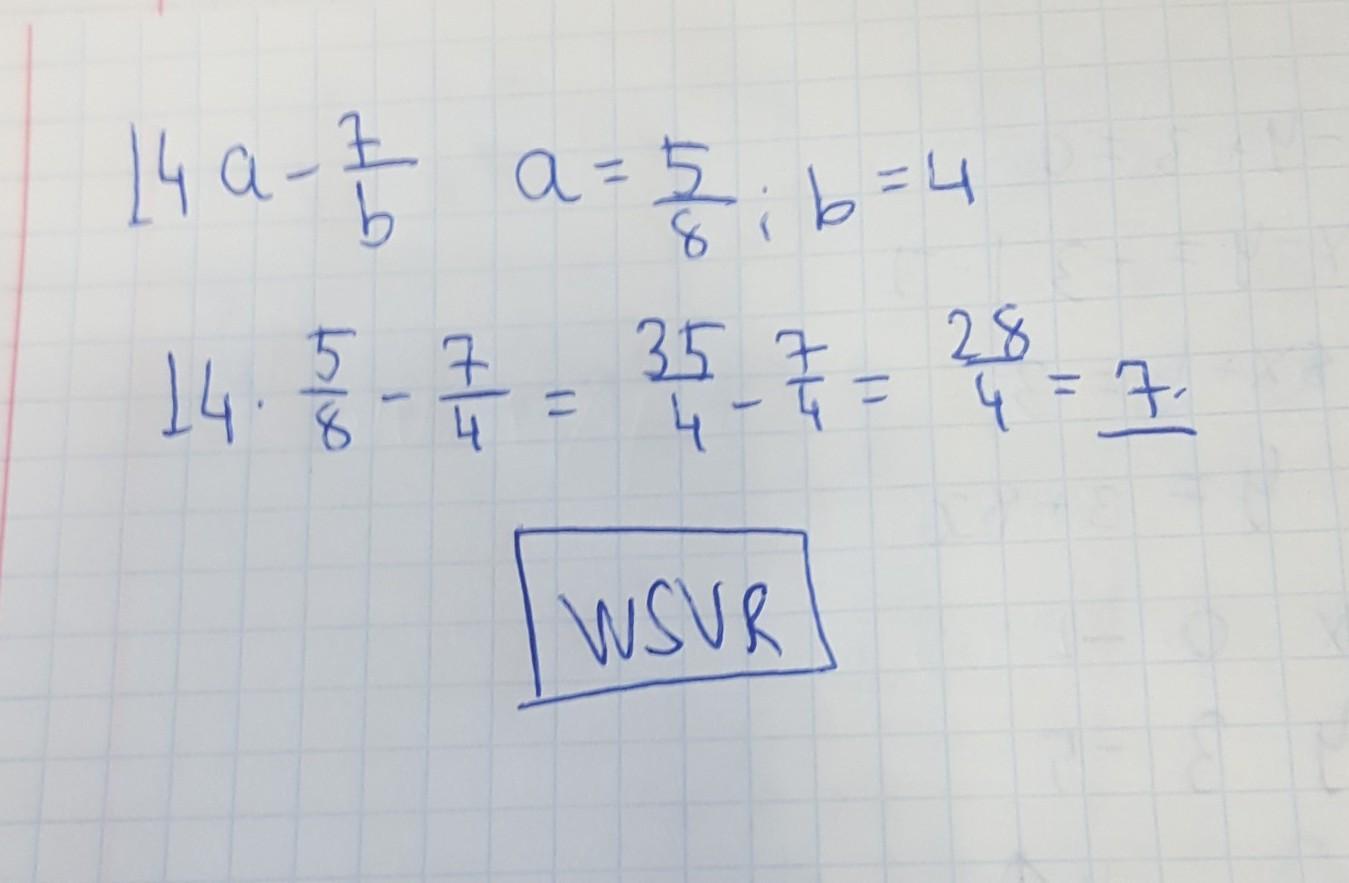 14a - 7/b   a = 5/8 ; b = 4
14 · 5/8 - 7/4 = 35/4 - 7/4 = 28/4 = 7.
WSVR